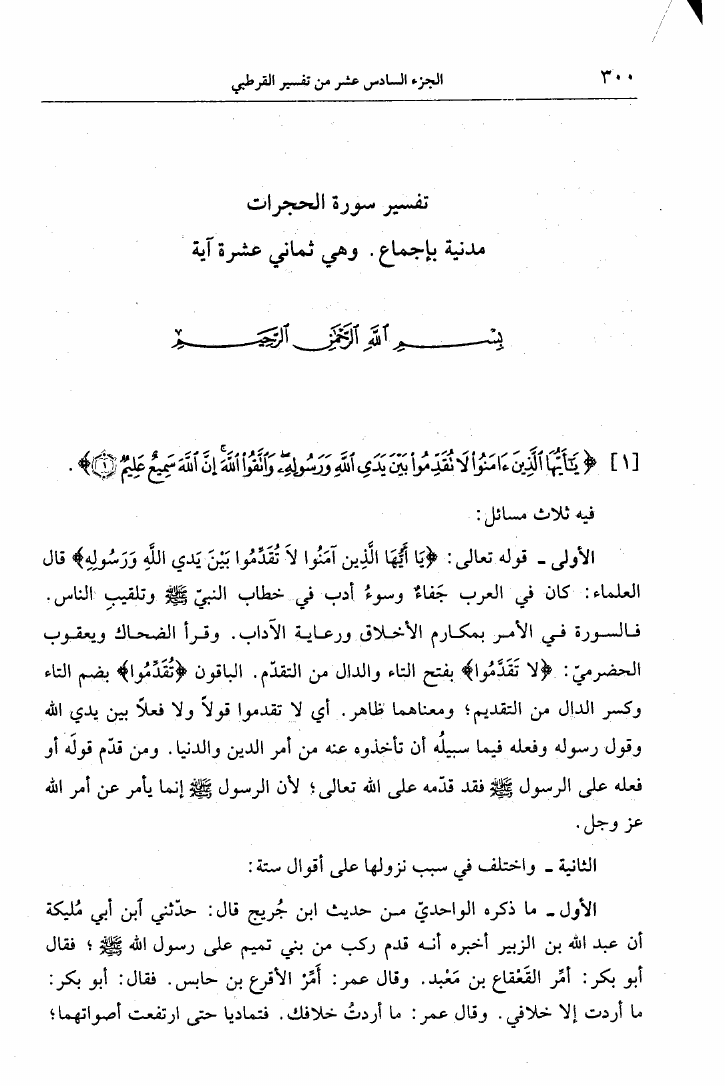 ٣٠٠
الجزء السادس عشر من تفسير القرطبي
تفسير سورة الحجرات
مدنية بإجماع. وهي ثماني عشرة آية
بِسْمِ ٱللَّهِ ٱلرَّحْمَٰنِ ٱلرَّحِيمِ
[١] ﴿ يَٰٓأَيُّهَا ٱلَّذِينَ ءَامَنُوا۟ لَا تُقَدِّمُوا۟ بَيْنَ يَدَىِ ٱللَّهِ وَرَسُولِهِۦ وَٱتَّقُوا۟ ٱللَّهَ إِنَّ ٱللَّهَ سَمِيعٌ عَلِيمٌ ١﴾.
فيه ثلاث مسائل:
الأولى ـ قوله تعالى: ﴿يَا أَيُّهَا الَّذِين آمَنُوا لاَ تُقَدِّمُوا بَيْنَ يَدي اللَّهِ وَرَسُولِهِ﴾ قال
العلماء: كان في العرب جَفاءٌ وسوءُ أدب في خطاب النبيّ ﷺ وتلقيب الناس.
فالسورة في الأمر بمكارم الأخلاق ورعاية الآداب. وقرأ الضحاك ويعقوب
الحضرميّ: ﴿لا تَقَدَّمُوا﴾ بفتح التاء والدال من التقدّم. الباقون ﴿تُقَدِّمُوا﴾ بضم التاء
وكسر الدال من التقديم؛ ومعناهما ظاهر. أي لا تقدموا قولاً ولا فعلاً بين يدي الله
وقول رسوله وفعله فيما سبيلُه أن تأخذوه عنه من أمر الدين والدنيا. ومن قدّم قولَه أو
فعله على الرسول ﷺ فقد قدّمه على الله تعالى؛ لأن الرسول ﷺ إنما يأمر عن أمر الله
عز وجل.
الثانية ـ واختلف في سبب نزولها على أقوال ستة:
الأول ـ ما ذكره الواحديّ من حديث ابن جُريج قال: حدّثني ٱبن أبي مُليكة
أن عبد الله بن الزبير أخبره أنه قدم ركب من بني تميم على رسول الله ﷺ؛ فقال
أبو بكر: أمِّر القَعْقاع بن مَعْبد. وقال عمر: أمِّرْ الأقرع بن حابس. فقال: أبو بكر:
ما أردت إلا خلافي. وقال عمر: ما أردتُ خلافك. فتماديا حتى ارتفعت أصواتهما؛